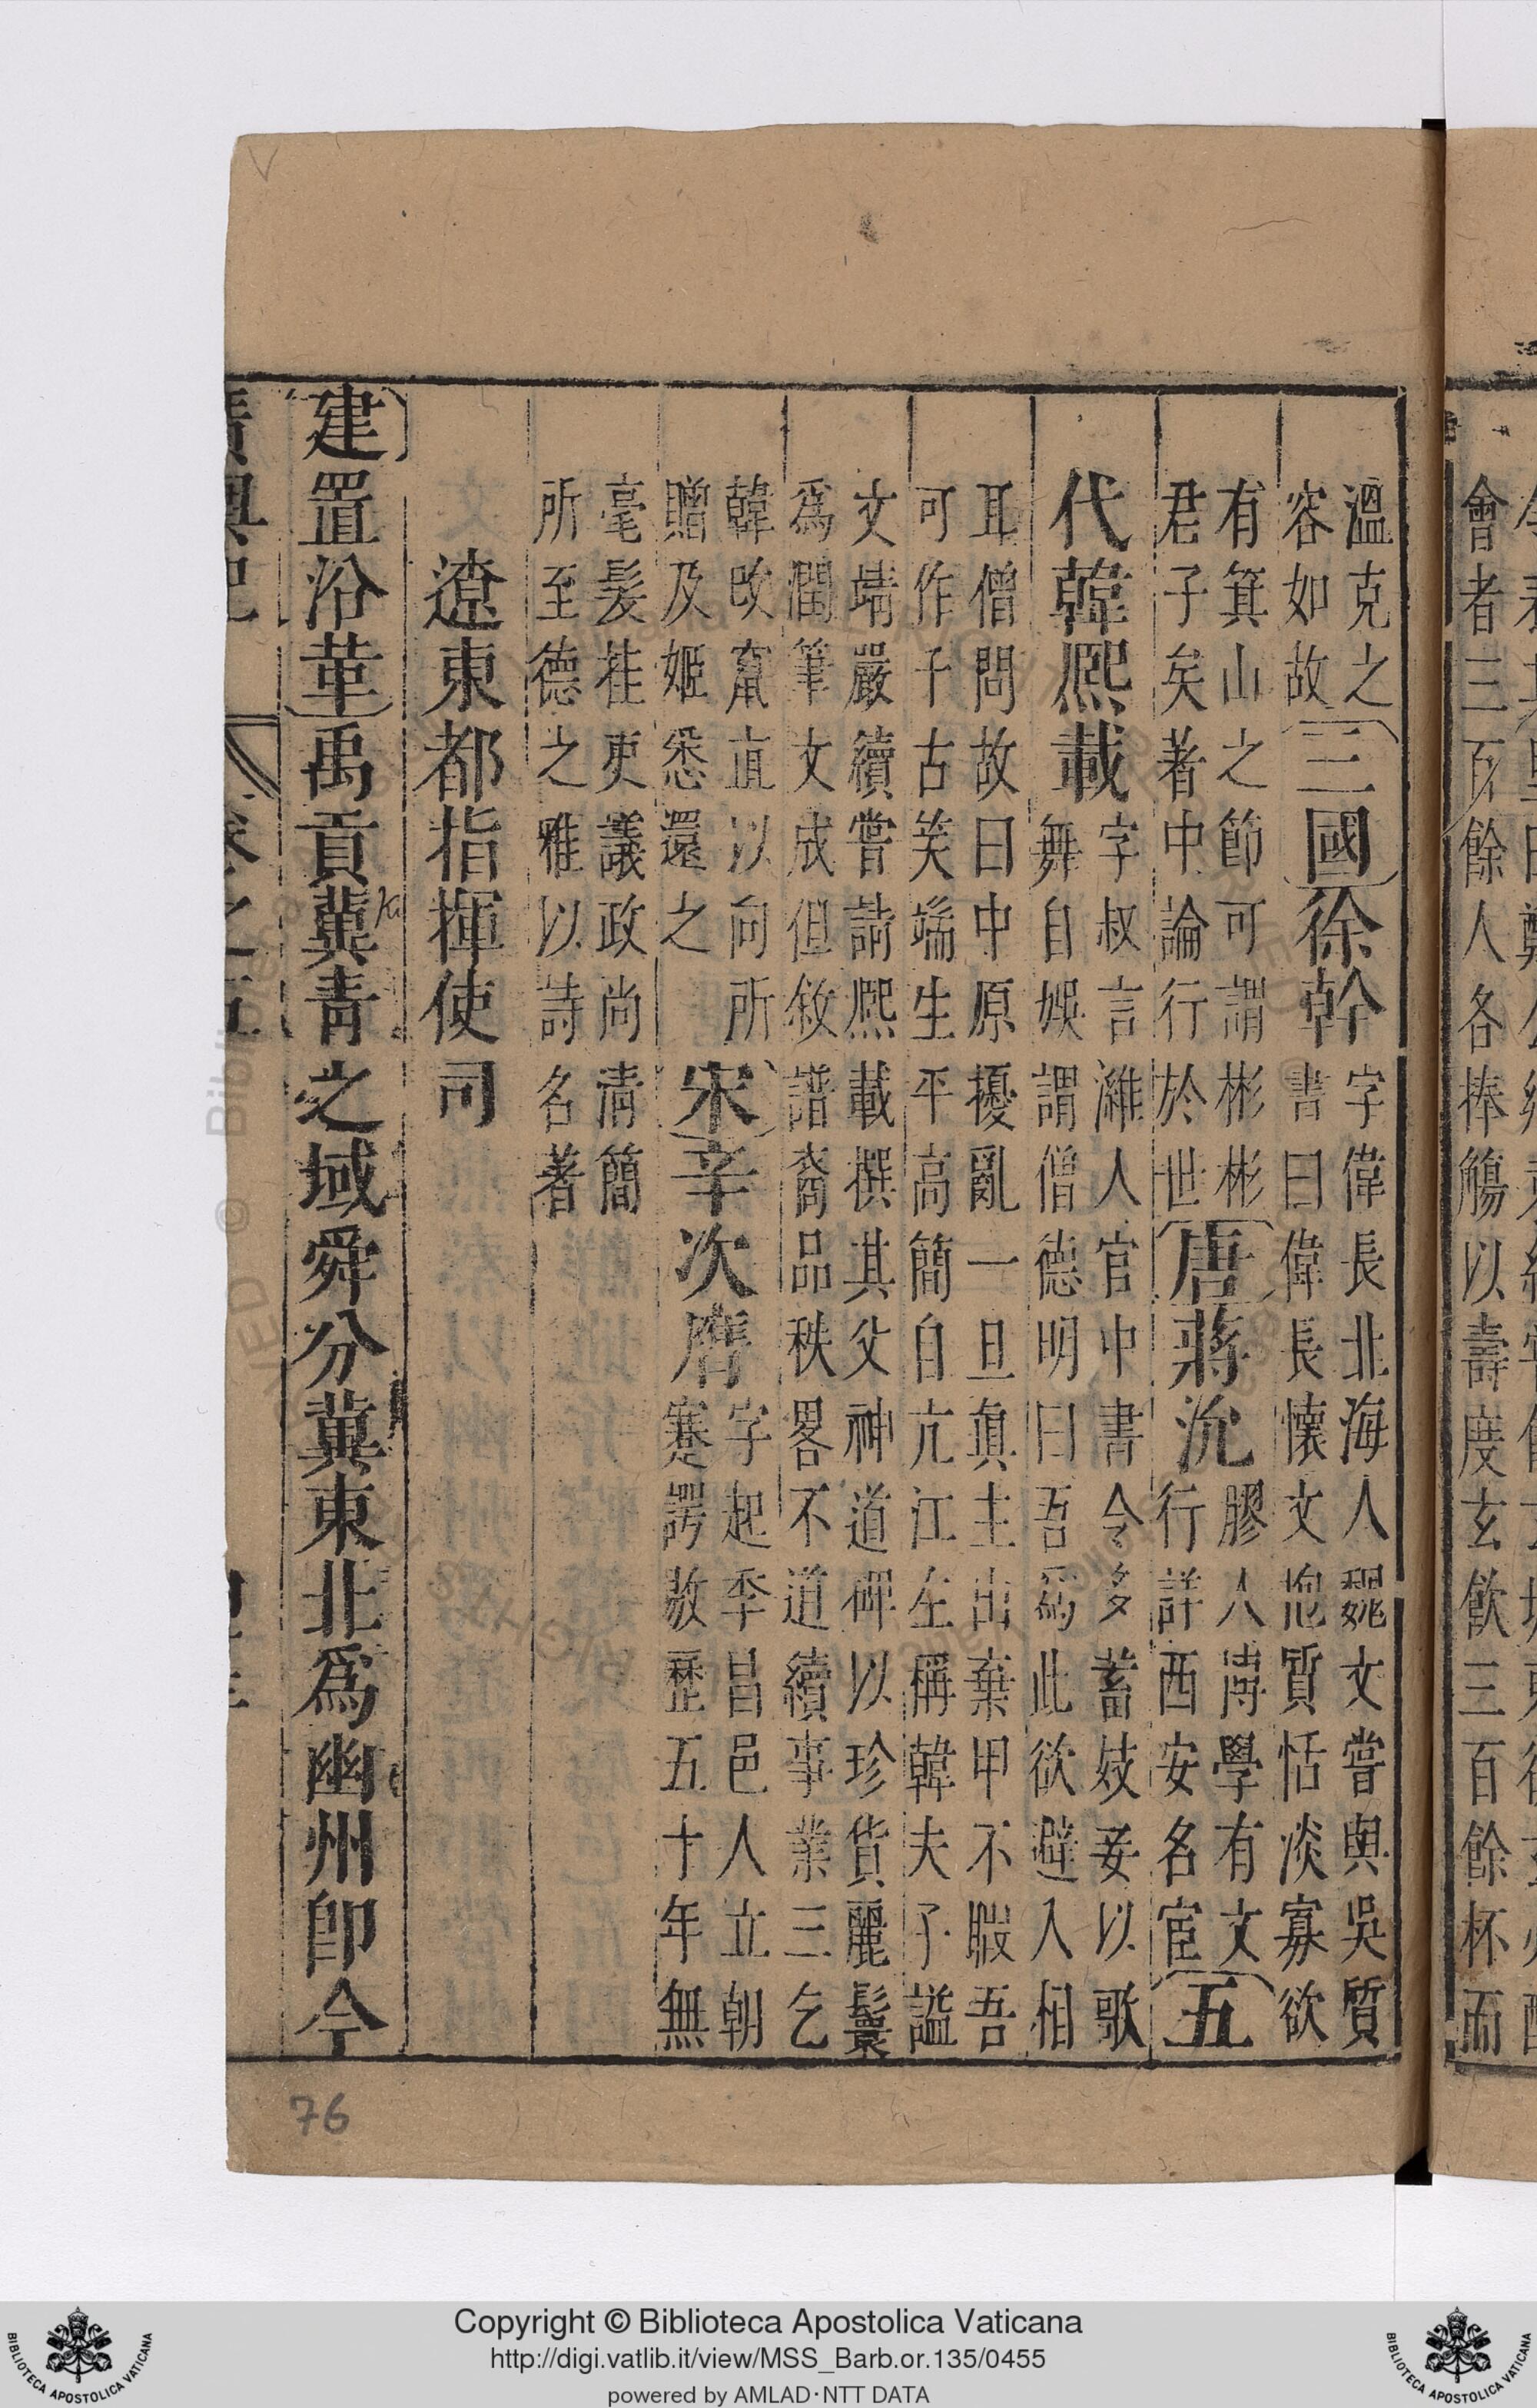 會者三百餘人各捧觴以壽度玄飲三百餘杯而
溫克之
容如故
三國徐幹
字偉長北海人魏文嘗與吳質
書曰偉長懷文抱質恬淡寡欲
有箕山之節可謂彬彬
君子矣著中論行於世
唐蔣沇
膠人博學有文
行詳西安名宦
五
代韓熙載
字叔言濰人官中書令多蓄妓妾以歌
舞自娛謂僧德明曰吾爲此欲避入相
耳僧問故曰中原擾亂一旦眞主出棄甲不暇吾
可作千古笑端生平高簡自亢江左稱韓夫子謚
文靖嚴續嘗請熙載撰其父神道碑以珍貨麗鬟
爲潤筆文成但敘譜裔品秩畧不道續事業三乞
韓改竄直以向所
贈及姬悉還之
宋辛次膺
字起季昌邑人立朝
蹇諤敭歷五十年無
毫髮挂吏議政尚清簡
所至德之雅以詩名著
遼東都指揮使司
建置沿革禹貢冀青之域舜分冀東北爲幽州卽今
76
Copyright © Biblioteca Apostolica Vaticana
http://digi.vatlib.it/view/MSS_Barb.or.135/0455
powered by AMLAD·NTT DATA
BIBLIOTECA APOSTOLICA VATICANA
BIBLIOTECA APOSTOLICA VATICANA